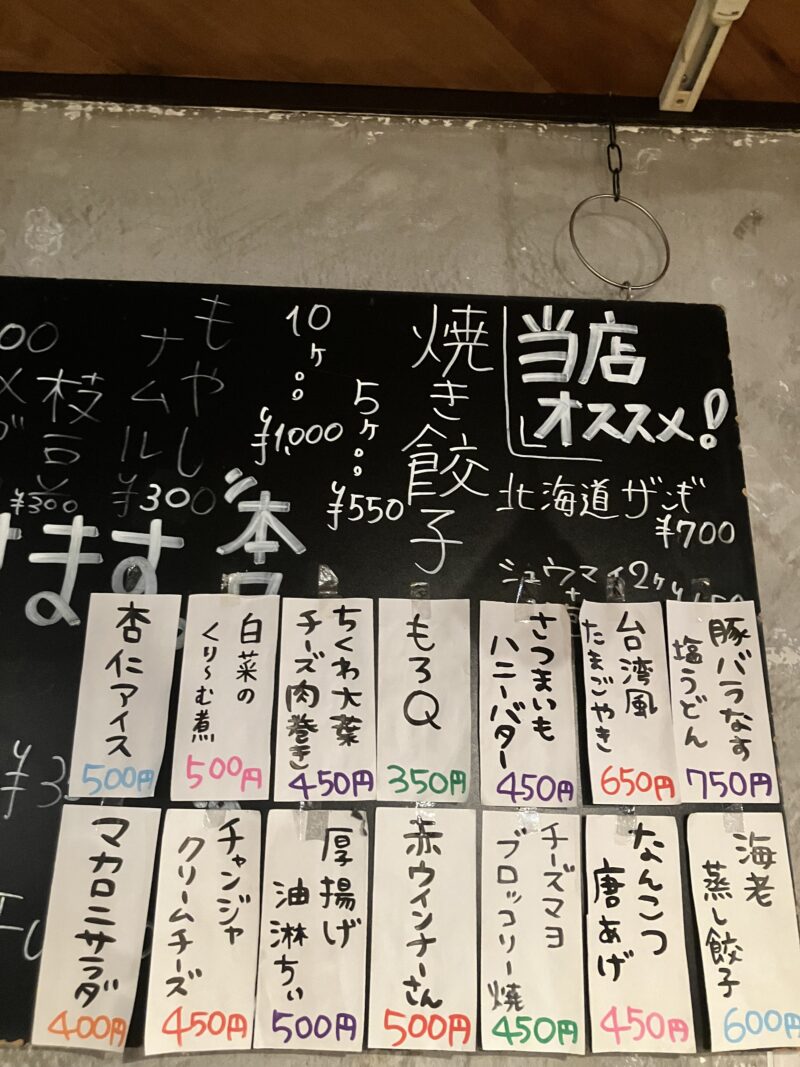 当店
オススメ!
北海道ザンギ
¥700
シュウマイ2ケ
焼き餃子
5ケ
¥550
10ケ
¥1,000
もやし
ナムル
¥300
枝豆
¥300
ます。
豚バラなす
塩うどん
750円
台湾風
たまごやき
650円
さつまいも
ハニーバター
450円
もろQ
350円
ちくわ大葉
チーズ肉巻き
450円
白菜の
くり〜む煮
500円
杏仁アイス
500円
海老
蒸し餃子
600円
なんこつ
唐あげ
450円
チーズマヨ
ブロッコリー焼
450円
赤ウインナーさん
500円
厚揚げ
油淋ちぃ
500円
チャンジャ
クリームチーズ
450円
マカロニサラダ
400円